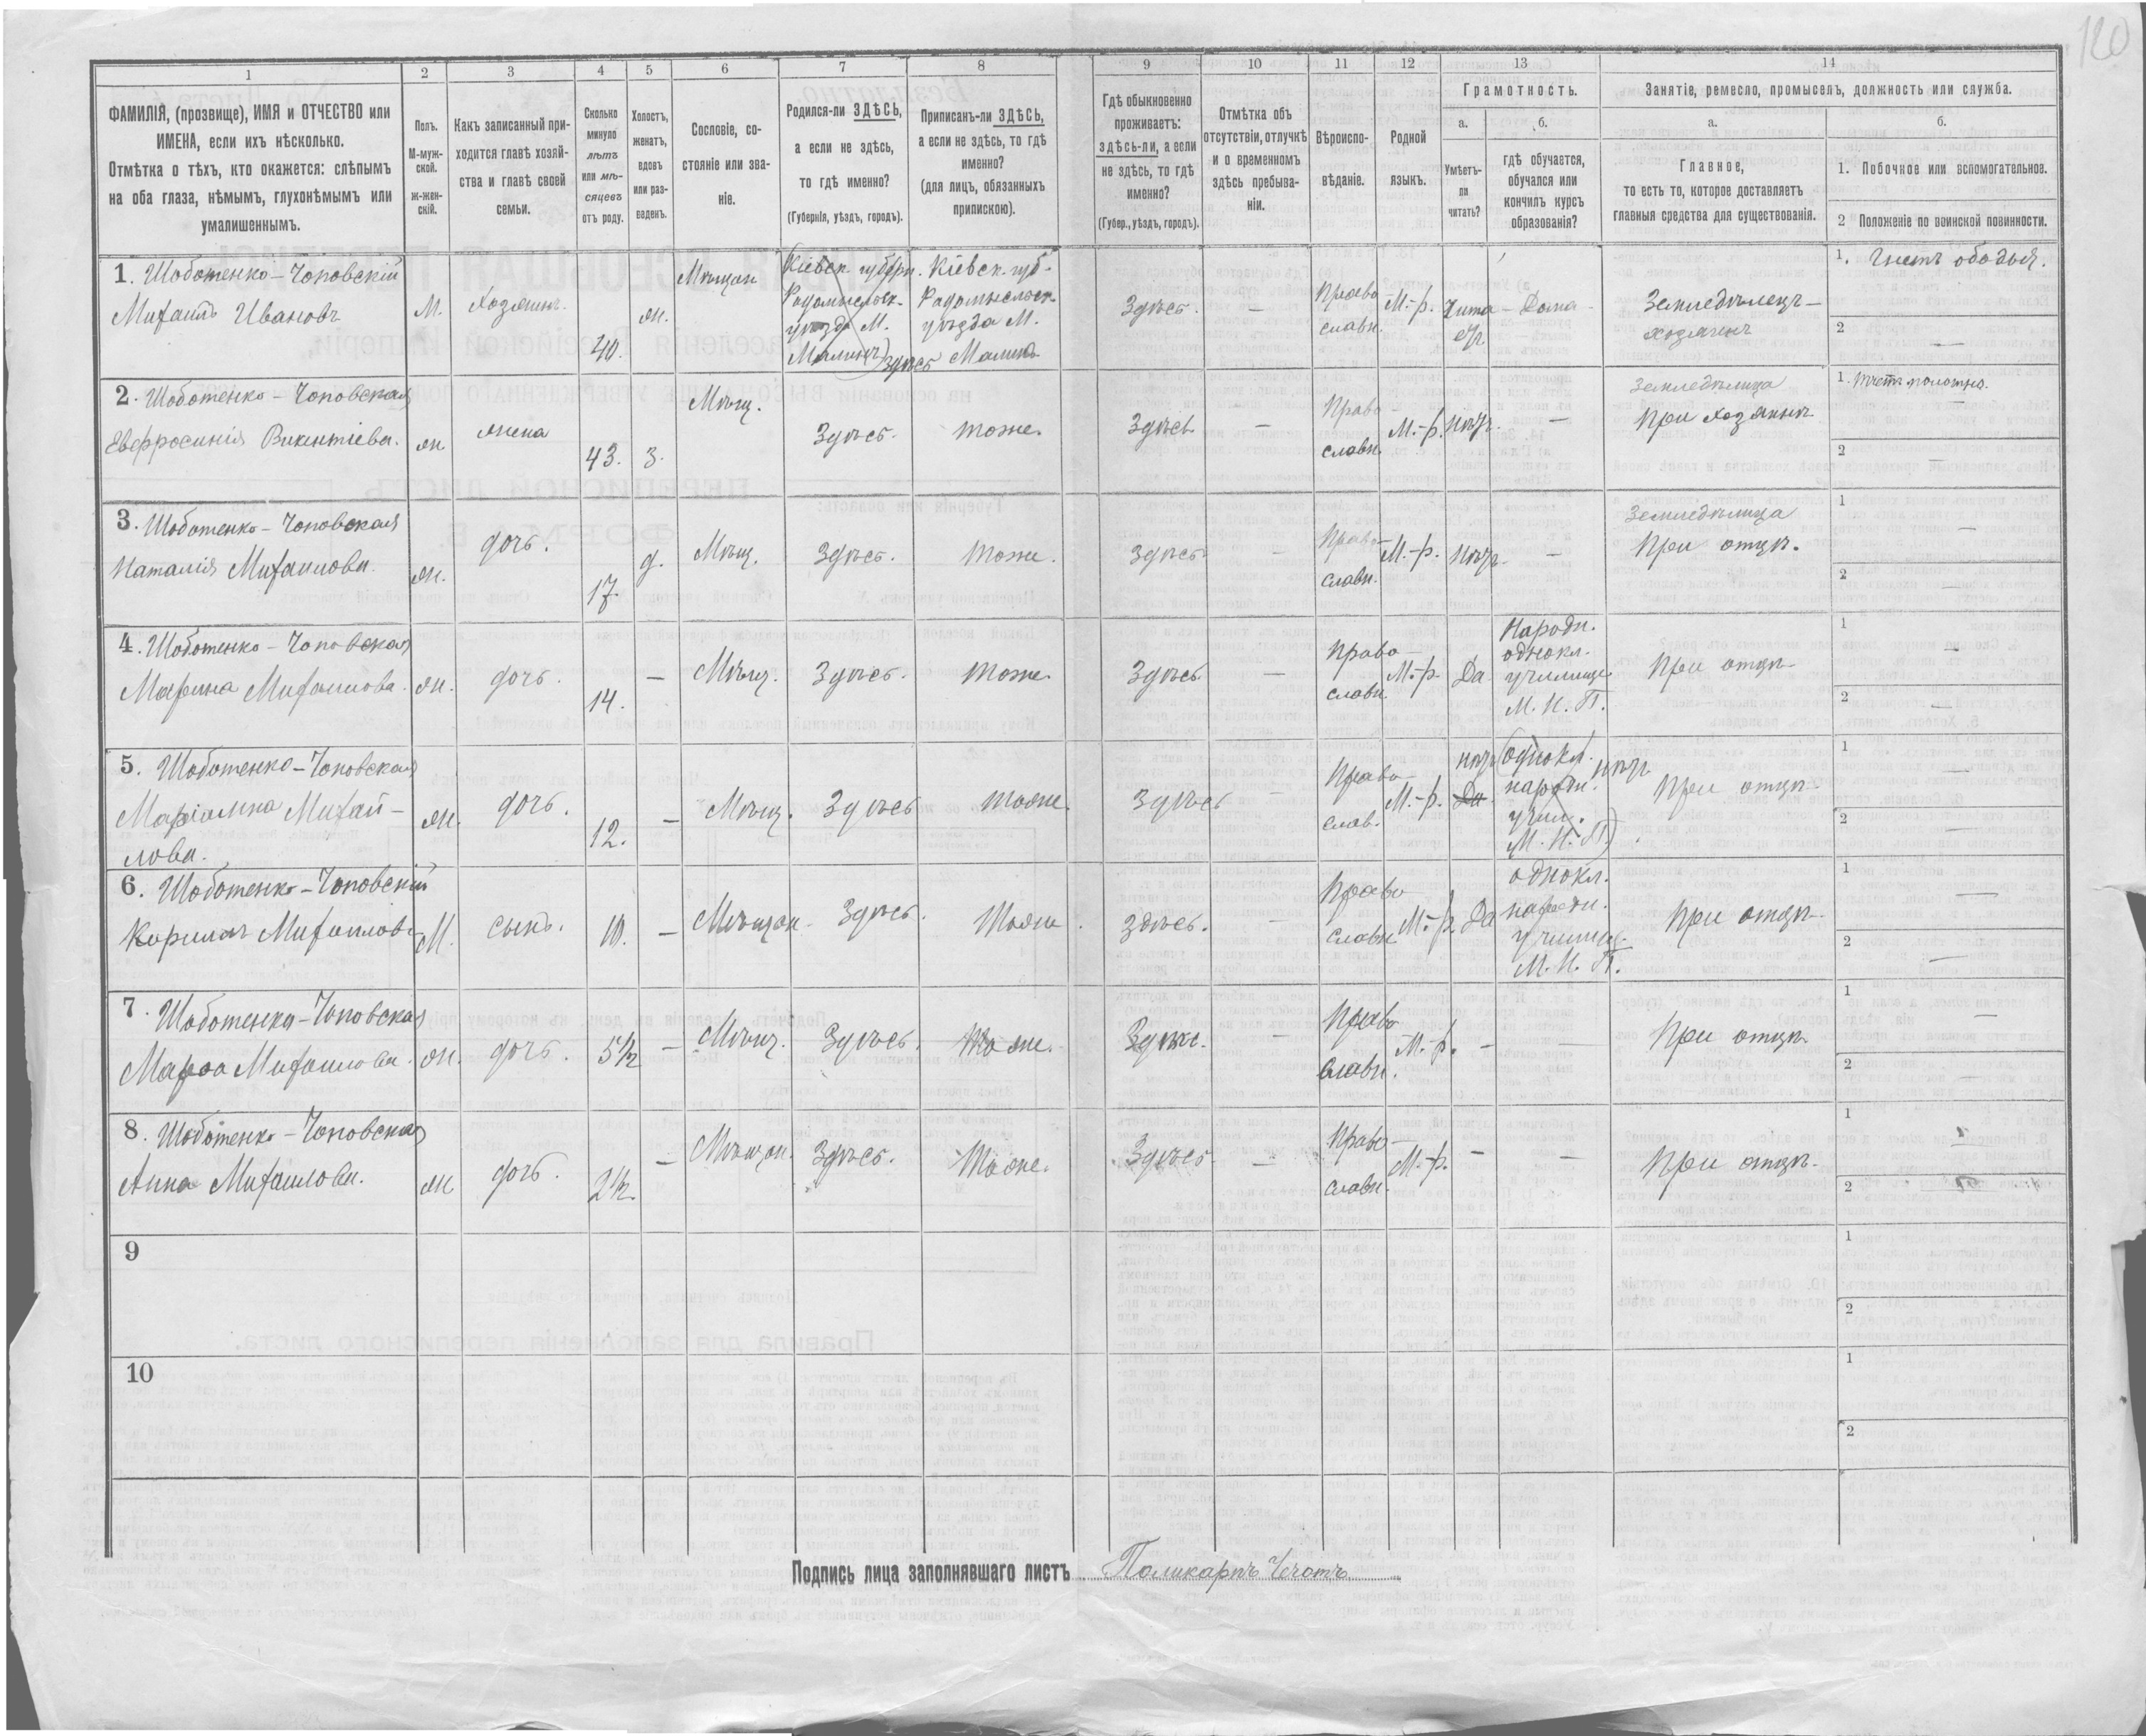 120
1 2 3 4 5 6 7 8 9 10 11 12 13 14
ФАМИЛІЯ, (прозвище), ИМЯ и ОТЧЕСТВО или
ИМЕНА, если ихъ нѣсколько.
Отмѣтка о тѣхъ, кто окажется: слѣпымъ
на оба глаза, нѣмымъ, глухонѣмымъ или
умалишеннымъ.
Полъ.
М-муж-
ской.
ж-жен-
скій.
Какъ записанный при-
ходится главѣ хозяй-
ства и главѣ своей
семьи.
Сколько
минуло
лѣтъ
или мѣ-
сяцевъ
отъ роду.
Холостъ,
женатъ,
вдовъ
или раз-
веденъ.
Сословіе, со-
стояніе или зва-
ніе.
Родился-ли ЗДѢСЬ,
а если не здѣсь,
то гдѣ именно?
(Губернія, уѣздъ, городъ).
Приписанъ-ли ЗДѢСЬ,
а если не здѣсь, то гдѣ
именно?
(для лицъ, обязанныхъ
припискою).
Гдѣ обыкновенно
проживаетъ:
здѣсь-ли, а если
не здѣсь, то гдѣ
именно?
(Губер., уѣздъ, городъ).
Отмѣтка объ
отсутствіи, отлучкѣ
и о временномъ
здѣсь пребыва-
ніи.
Вѣроиспо-
вѣданіе.
Родной
языкъ.
Грамотность.
а.
Умѣетъ-
ли
читать?
б.
гдѣ обучается,
обучался или
кончилъ курсъ
образованія?
Занятіе, ремесло, промыселъ, должность или служба.
а.
Главное,
то есть то, которое доставляетъ
главныя средства для существованія.
б.
1. Побочное или вспомогательное.
2 Положеніе по воинской повинности.
1. Шоботенко – Чоповскій
Михаилъ Ивановъ
М.
Хозяинъ.
40.
ж.
Мѣщан
Кіевск. губерн.
Радомысльск.
уѣзда М.
Малинъ) здѣсь
Кіевск. губ.
Радомысльск.
уѣзда М.
Малинъ
Здѣсь.
–
Право
славн.
М.-р.
Чита
етъ
Дома
Земледѣлецъ –
хозяинъ
1. Гнетъ ободья.
2 –
2. Шоботенко – Чоповская
Евфросинія Викентіева.
ж
жена
43.
з.
Мѣщ.
Здѣсь.
тоже.
Здѣсь
–
Право
славн.
М.-р.
нѣтъ.
–
Земледѣлица
При хозяинѣ
1. Тчетъ полотно.
2 –
3. Шоботенко – Чоповская
Наталія Михаилови.
ж.
дочь.
17.
д.
Мѣщ.
Здѣсь.
тоже.
Здѣсь
–
Право
славн.
М.-р.
нѣтъ.
–
Земледѣлица
При отцѣ.
1 –
2 –
4. Шоботенко – Чоповская
Марина Михаилова.
ж.
дочь.
14.
–
Мѣщ.
Здѣсь.
тоже.
Здѣсь
–
Право –
славн.
М.-р.
Да
Народн.
однокл.
училище
М. Н. П.
При отцѣ
1 –
2 –
5. Шоботенко – Чоповская
Маріанна Михай –
лова.
ж.
дочь.
12.
–
Мѣщ.
Здѣсь
тоже.
Здѣсь
–
Право –
слав.
М.-р.
нѣтъ
Да
(однокл.
народн.
учил.
М. Н. П.)
нѣтъ
При отцѣ
1 –
2 –
6. Шоботенко – Чоповскій
Кирилъ Михаиловъ
М.
сынъ.
10.
–
Мѣщан.
Здѣсь.
тоже.
здѣсь.
–
Право
славн
М.-р.
Да
однокл.
народн.
училищ.
М. Н. П.
При отцѣ.
1 –
2 –
7. Шоботенко – Чоповская
Марѳа Михаилови.
ж.
дочь.
5½
–
Мѣщ.
Здѣсь.
тоже.
Здѣсь.
–
Право
славн.
М.-р.
–
–
При отцѣ
1 –
2 –
8. Шоботенко – Чоповская
Анна Михаилови.
ж
дочь.
2½.
–
Мѣщан.
Здѣсь.
тоже.
Здѣсь.
–
Право –
славн.
М.-р.
–
–
При отцѣ.
1
2
9
1
2
10
1
2
Подпись лица заполнявшаго листъ Поликарпъ Чечотъ